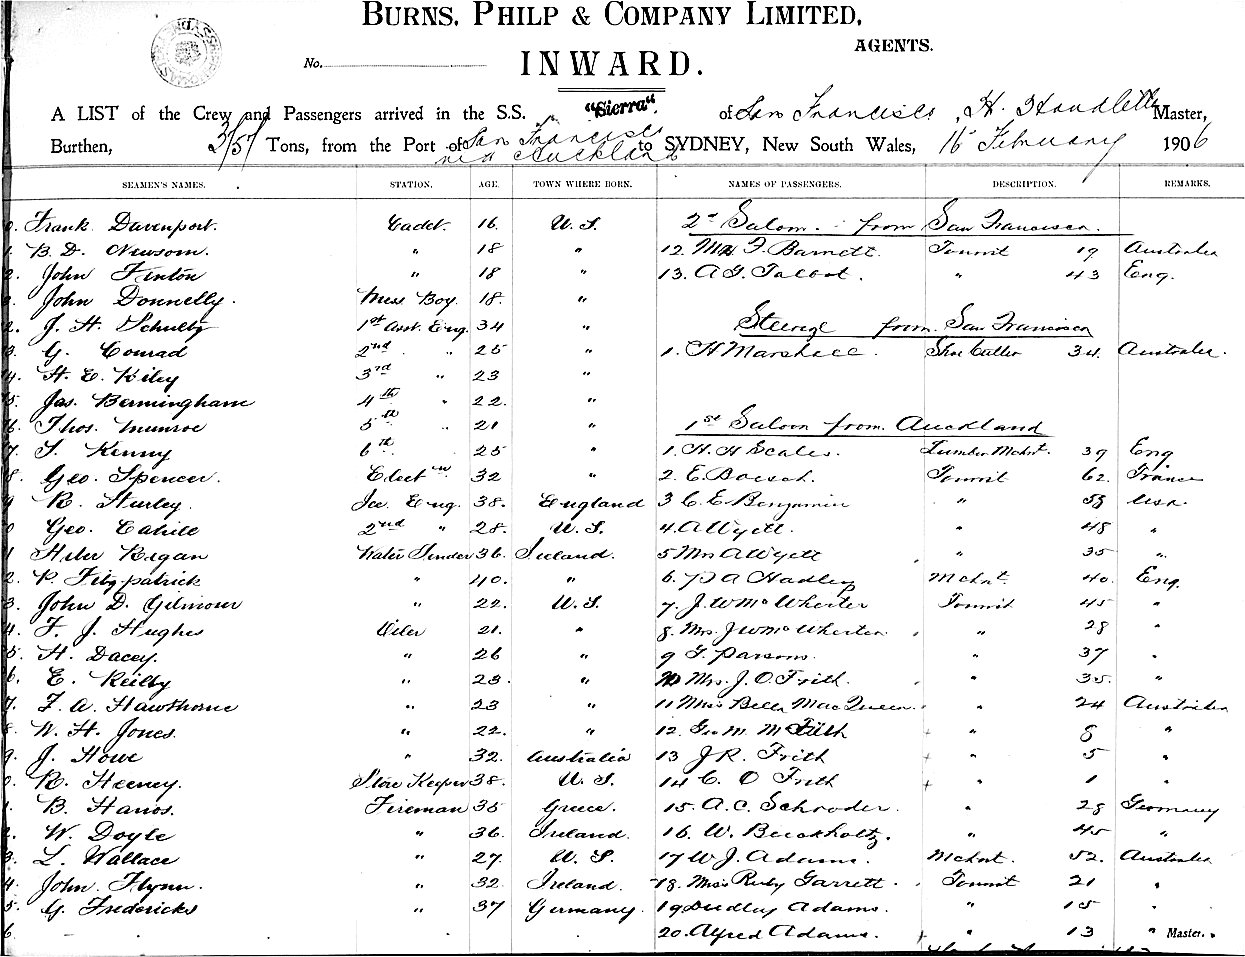 BURNS, PHILP & COMPANY LIMITED,
AGENTS.
No.
INWARD.
A LIST of the Crew and Passengers arrived in the S.S. "Sierra" of San Francisco, H. Master,
Burthen, Tons, from the Port of San Francisco to SYDNEY, New South Wales, 16 February 1906
via Auckland
SEAMEN'S NAMES. STATION. AGE. TOWN WHERE BORN. NAMES OF PASSENGERS. DESCRIPTION. REMARKS.
Frank Davenport. Cadet. 16. U.S. 2nd Saloon. from San Francisco.
B. D. Newsom. " 18 " 12. F. Barnett Tourist 19 Australia
John Fenton " 18 " 13. A. G. Talbot. " 43 Eng.
John Donnelly. Mess Boy. 18. "
J. H. Schultz 1st Asst. Eng. 34 " Steerage from San Francisco
G. Conrad 2nd " 25 " 1. H Marshall. Shoe Cutter 34. Australia.
H. E. Kiley 3rd " 23 "
Jas. Bermingham 4th " 22. "
Thos. Munroe 5th " 21 " 1st Saloon from Auckland
T. Kenny 6th 25 " 1. H. H Scales. Lumber Mcht. 39 Eng
Geo. Spencer. Elect'n 32 " 2. E. Boesch. Tourist 62. France
R. Hurley Ice Eng. 38. England 3 C. E. Benjamin " 59 USA.
Geo. Cahill 2nd " 28. U.S. 4. A Wyett. " 48 "
Regan Water Tender 36. Ireland. 5 Mrs A Wyett " 35 "
P. Fitzpatrick " 40. " 6. A Hadley Mchnt. 40. Eng.
John D. Gilmour " 22. U.S. 7. J. W McWherter Tourist 45 "
F. J. Hughes Oiler 21. " 8. Mrs. J W McWherter " 28 "
H. Dacey. " 26 " 9 G. Parsons. " 37 "
E. Reilly " 23. " 10 Mrs. J. O Frith. " 35. "
F. A. Hawthorne " 23 " 11 Miss Bella MacQueen. " 24 Australia
W. H. Jones. " 22. " 12. Geo M. M Frith " 8 "
J. Howe " 32. Australia 13 J R. Frith " 5 "
R. Heeney. Store Keeper 38. U.S. 14 C. O Frith " 1 "
B. Hanos. Fireman 35 Greece. 15. A. C. Schroder. " 28 Germany
W. Doyle " 36. Ireland. 16. W. Buckholtz. " 45 "
L. Wallace " 27. U.S. 17 W. J. Adams. Mchnt. 52. Australia
John Flynn. " 32. Ireland. 18. Miss Ruby Garrett. Tourist 21 "
G. Fredericks " 37 Germany. 19 Dudley Adams. " 15 "
20. Alfred Adams. " 13 " Master.